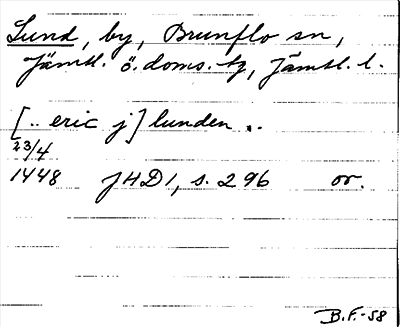 Lund, by, Brunflo sn,
Jämtl. ö. doms. tg, Jämtl. l.
[.. eric j] lunden ..
23/4
1448 JHD 1, s. 296 or.
B.F.-58